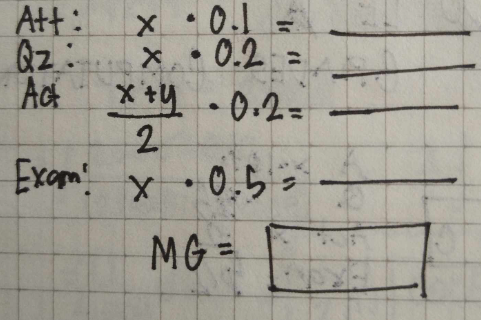 Att: x · 0.1 = ____
Qz: x · 0.2 = ____
Act x+y/2 · 0.2 = ____
Exam: x · 0.5 = ____
MG =